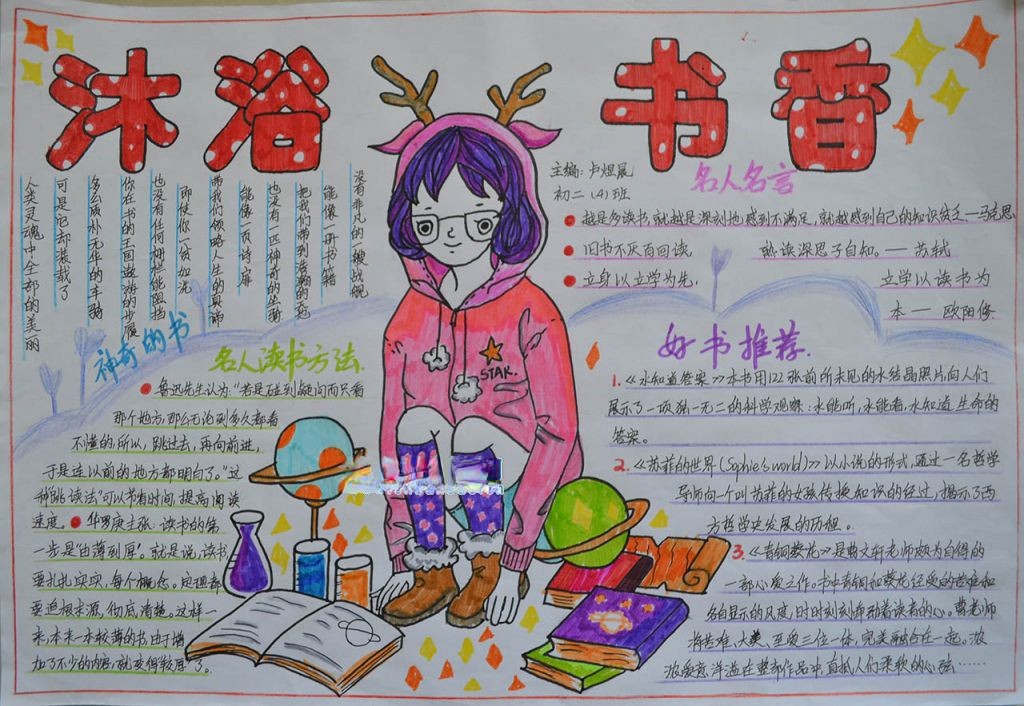 沐浴书香
主编:卢煜晨
初二(4)班
没有非凡的一艘战舰
能像一册书籍
把我们带到浩瀚的天地
也没有一匹神奇的坐骑
能像一页诗扉
带我们领略人生的真谛
即使你一贫如洗
也没有任何栅栏能阻挡
你在书的王国遨游的步履
多么质朴无华的车骑
可是它却装载了
人类灵魂中全部的美丽
神奇的书
名人读书方法
鲁迅先生认为:“若是碰到疑问而只看
那个地方,那么无论到多久都看
不懂的,所以,跳过去,再向前进,
于是连以前的地方都明白了。”这
种“跳读法”可以节省时间,提高阅读
速度。华罗庚主张:读书的第
一步是“由薄到厚”。就是说,读书
要扎扎实实,每个概念。定理都
要追根求源,彻底清楚。这样一
来,本来一本较薄的书由于增
加了不少的内容,就变得“较厚”了。
名人名言
越是多读书,就越是深刻地感到不满足,就越感到自己的知识贫乏—马克思
旧书不厌百回读, 熟读深思子自知。—苏轼
立身以立学为先, 立学以读书为
本—欧阳修
好书推荐.
1.《水知道答案》本书用122张前所未见的水结晶照片,向人们
展示了一项独一无二的科学观察:水能听,水能看,水知道生命的
答案。
2.《苏菲的世界(Sophie's world)》以小说的形式,通过一名哲学
导师向一个叫苏菲的女孩传授知识的经过,揭示了西
方哲学史发展的历程。
3.《青铜葵花》是曹文轩老师颇为自得的
一部心爱之作。书中青铜和葵花经受的苦难和
各自显示的风度,时时刻刻牵动着读者的心。曹老师
将苦难、大美、至爱三位一体,完美融合在一起。浓
浓爱意洋溢在整部作品中,直抵人们柔软的心弦……
STAR.